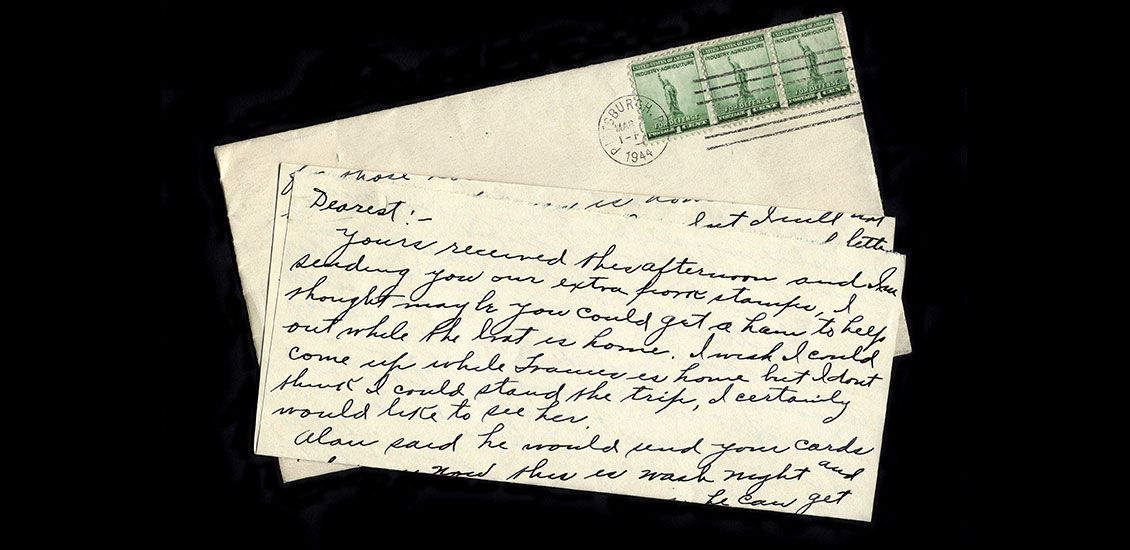 UNITED STATES OF AMERICA
INDUSTRY AGRICULTURE
FOR DEFENSE
POSTAGE 1 CENT
UNITED STATES OF AMERICA
INDUSTRY AGRICULTURE
FOR DEFENSE
POSTAGE 1 CENT
UNITED STATES OF AMERICA
INDUSTRY AGRICULTURE
FOR DEFENSE
POSTAGE 1 CENT
PITTSBURGH
MAR
1944
those
is
but I will not
letter
Dearest!-
Yours received this afternoon and I am
sending you our extra pork stamps, I
thought maybe you could get a ham to help
out while the is home. I wish I could
come up while Frances is home but I dont
think I could stand the trip, I certainly
would like to see her.
Alan said he would send your cards
and
now this is wash night
he can get